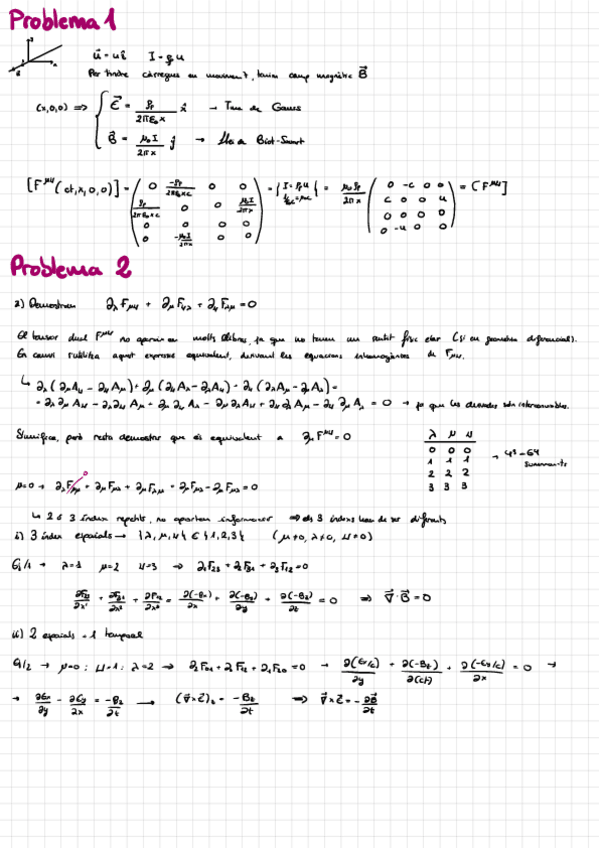 Problema 1
z
x
u⃗ = u î   I = ρ u
Per tindre càrregues en moviment, tenim camp magnètic B⃗
(x,0,0) ⇒ { E⃗ = ρ_l / 2πε₀x x̂ → Teo. de Gauss
B⃗ = μ₀I / 2πx ĵ → Llei de Biot-Savart
[F^μν (ct,x,0,0)] = ( 0 -ρ_l/2πε₀xc 0 0
ρ_l/2πε₀xc 0 0 μ₀I/2πx
0 0 0 0
0 -μ₀I/2πx 0 0 ) = { I = ρ_l u } = μ₀ρ_l/2πx ( 0 -c 0 0
c 0 0 u
0 0 0 0
0 -u 0 0 ) = [F^μν]
Problema 2
a) Demostreu ∂_λ F_μν + ∂_μ F_νλ + ∂_ν F_λμ = 0
El tensor dual F^μν no apareix en molts llibres, ja que no tenen un sentit físic clar (sí en geometria diferencial).
En canvi s'utilitza aquest expressió equivalent, derivant les equacions homogènies de F_μν.
↳ ∂_λ(∂_μ A_ν - ∂_ν A_μ) + ∂_μ(∂_ν A_λ - ∂_λ A_ν) + ∂_ν(∂_λ A_μ - ∂_μ A_λ) =
= ∂_λ ∂_μ A_ν - ∂_λ ∂_ν A_μ + ∂_μ ∂_ν A_λ - ∂_μ ∂_λ A_ν + ∂_ν ∂_λ A_μ - ∂_ν ∂_μ A_λ = 0 → ja que les derivades són intercanviables.
Significa, però resta demostrar que és equivalent a ∂_μ F^μν = 0
λ μ ν
0 0 0
1 1 1
2 2 2
3 3 3
→ 4³ = 64 summants
0
μ=ν → ∂_λ F_μμ + ∂_μ F_μλ + ∂_μ F_λμ = ∂_μ F_μλ - ∂_μ F_μλ = 0
↳ 2 o 3 índex repetits, no aporten informació ⇒ els 3 índexs han de ser diferents
i) 3 índex espacials → {λ, μ, ν} ∈ {1,2,3} (μ≠0, λ≠0, ν≠0)
λ=1 μ=2 ν=3 ⇒ ∂₁F₂₃ + ∂₂F₃₁ + ∂₃F₁₂ = 0
∂F₂₃/∂x¹ + ∂F₃₁/∂x² + ∂F₁₂/∂x³ = ∂(-Bₓ)/∂x + ∂(-B_y)/∂y + ∂(-B_z)/∂z = 0 ⇒ ∇⃗·B⃗ = 0
ii) 2 espacials + 1 temporal
μ=0; ν=1; λ=2 → ∂₂F₀₁ + ∂₀F₁₂ + ∂₁F₂₀ = 0 → ∂(Eₓ/c)/∂y + ∂(-B_z)/∂(ct) + ∂(-E_y/c)/∂x = 0 →
→ ∂Eₓ/∂y - ∂E_y/∂x = -B_z/∂t → (∇⃗×E⃗)_z = -B_z/∂t ⇒ ∇⃗×E⃗ = -∂B⃗/∂t